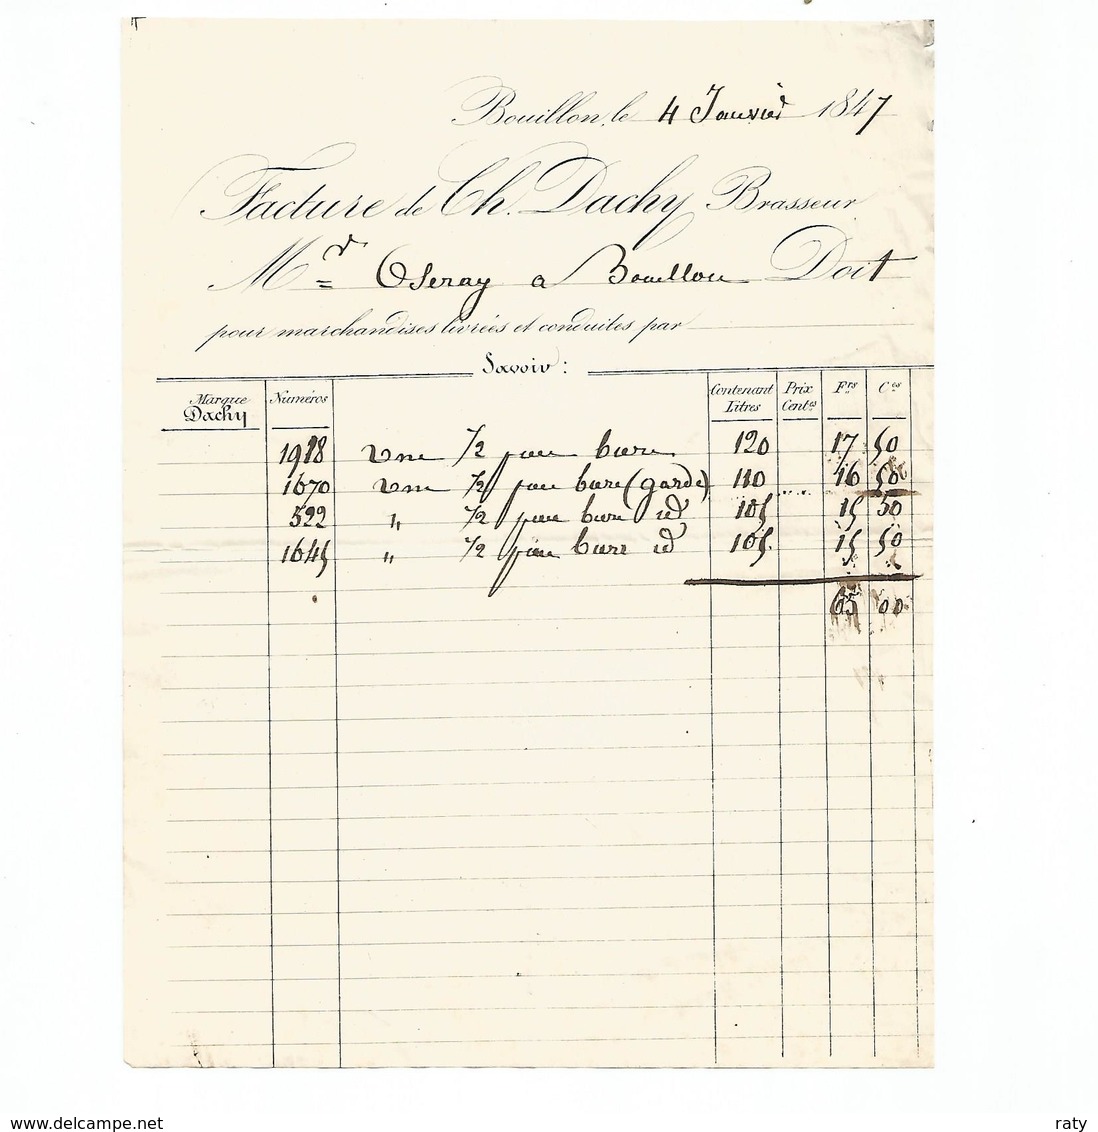 Bouillon, le 4 Janvier 1847
Facture de Ch. Dachy Brasseur
Mr Oseray a Bouillon Doit
pour marchandises livrées et conduites par
Savoir :
Marque Dachy Numéros Contenant Litres Prix Cent.es F.rs C.es
1918 une 1/2 biere 120 17 50
1670 une 1/2 biere (garde) 110 16 50
522 " 1/2 biere id 105 15 50
1645 " 1/2 biere id 105 15 50
65 00
www.delcampe.net
raty